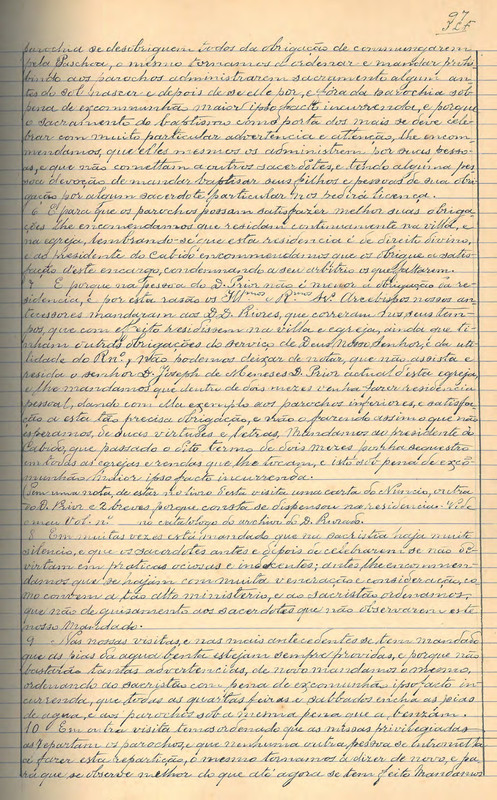 97
parochia se desobriguem todos da obrigação de commungarem
pela Paschoa, o mesmo tornamos a ordenar e mandar prohi
bindo aos parochos administrarem sacramento algum an
tes do sol nascer e depois de se elle por, e fora da parochia sob
pena de excommunhão maior ipso facto incurrenda, e porque
o sacramento do baptismo como porta dos mais se deve cele
brar com muito particular advertencia e attenção, lhe encom
mendamos, que elles mesmos os administrem por suas pesso
as, e que não comettam a outros sacerdotes, e tendo alguma pes
soa devoção de mandar baptisar seus filhos e pessoas de sua obri
gação por algum sacerdote particular nos pedirá licença.
6 E para que os parochos possam satisfazer melhor suas obriga
ções lhe encomendamos que residam continuamente na villa, e
na egreja, lembrando-se que esta residencia é de direito divino,
e ao presidente do Cabido encommendamos que os obrigue a satis
fação d'este encargo, condemnando a seu arbitrio os que faltarem.
7 E porque na pessoa do D. Prior não é menor a obrigação da re
sidencia, e por esta rasão os Ill.mos e R.mos Sr.s Arcebispos nossos an
tecessores mandaram aos D. D. Priores, que correram nos seus tem
pos, que com effeito residissem na villa e egreja, ainda que ti
nham outras obrigações do serviço de Deus Nosso Senhor, e da uti
lidade do Rn.º, Não podemos deixar de notar, que não assista e
resida o senhor D. Joseph de Meneses D. Prior actual d'esta egreja,
e lhe mandamos que dentro de dois mezes venha fazer residencia
pessoal, dando com ella exemplo aos parochos inferiores, e satisfa
ção a esta tão precisa obrigação, e não o fazendo assim o que não
esperamos, de suas virtudes e letras, Mandamos ao presidente do
Cabido, que passado o dito termo de dois mezes ponha sequestro
em todas as egrejas e rendas que lhe tocam, e isto sob pena de exco
munhão maior ipso facto incurrenda.
Tem uma nota, de estar no livro d'esta visita uma carta do Nuncio, outra
do D. Prior e 2 breves porque consta se dispensou na residencia.
e meu Vol. no catalogo do archivo do D. Priorado.
8 Em muitas vezes está mandado que na sacristia haja muito
silencio, e que os sacerdotes antes e depois de celebrarem se não di
virtam em praticas ociosas e indecentes; antes, lhe encommen
damos que se hajam com muita veneração e consideração, co
mo convem a tão alto ministerio, e ao sacristão ordenamos,
que não dê guisamento aos sacerdotes que não observarem este
nosso Mandado.
9 Nas nossas visitas, e nas mais antecedentes se tem mandado
que as pias da agua benta estejam sempre providas, e porque não
bastarão tantas advertencias, de novo mandamos o mesmo,
ordenando ao sacristão com pena de excomunhão ipso facto in
currenda, que todas as quartas feiras e sabbados encha as pias
de agua, e aos parochos sob a mesma pena que a benzam.
10 Em outra visita temos ordenado que as missas privilegiadas
as repartam os parochos, e que nenhuma outra pessoa se intrometta
a fazer esta repartição, o mesmo tornamos a dizer de novo, e pa
ra que se observe melhor do que até agora se tem feito Mandamos